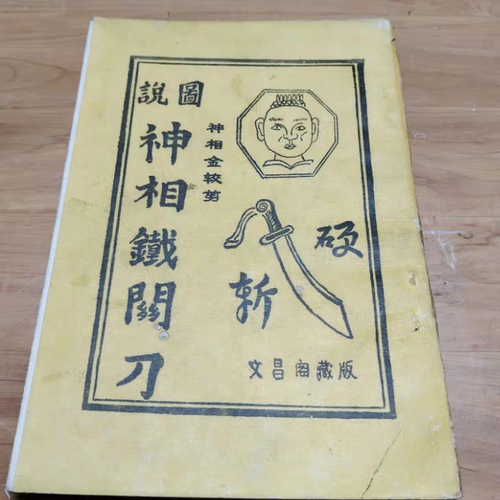 圖說
神相金較剪
神相鐵關刀
硬斬
文昌閣藏版